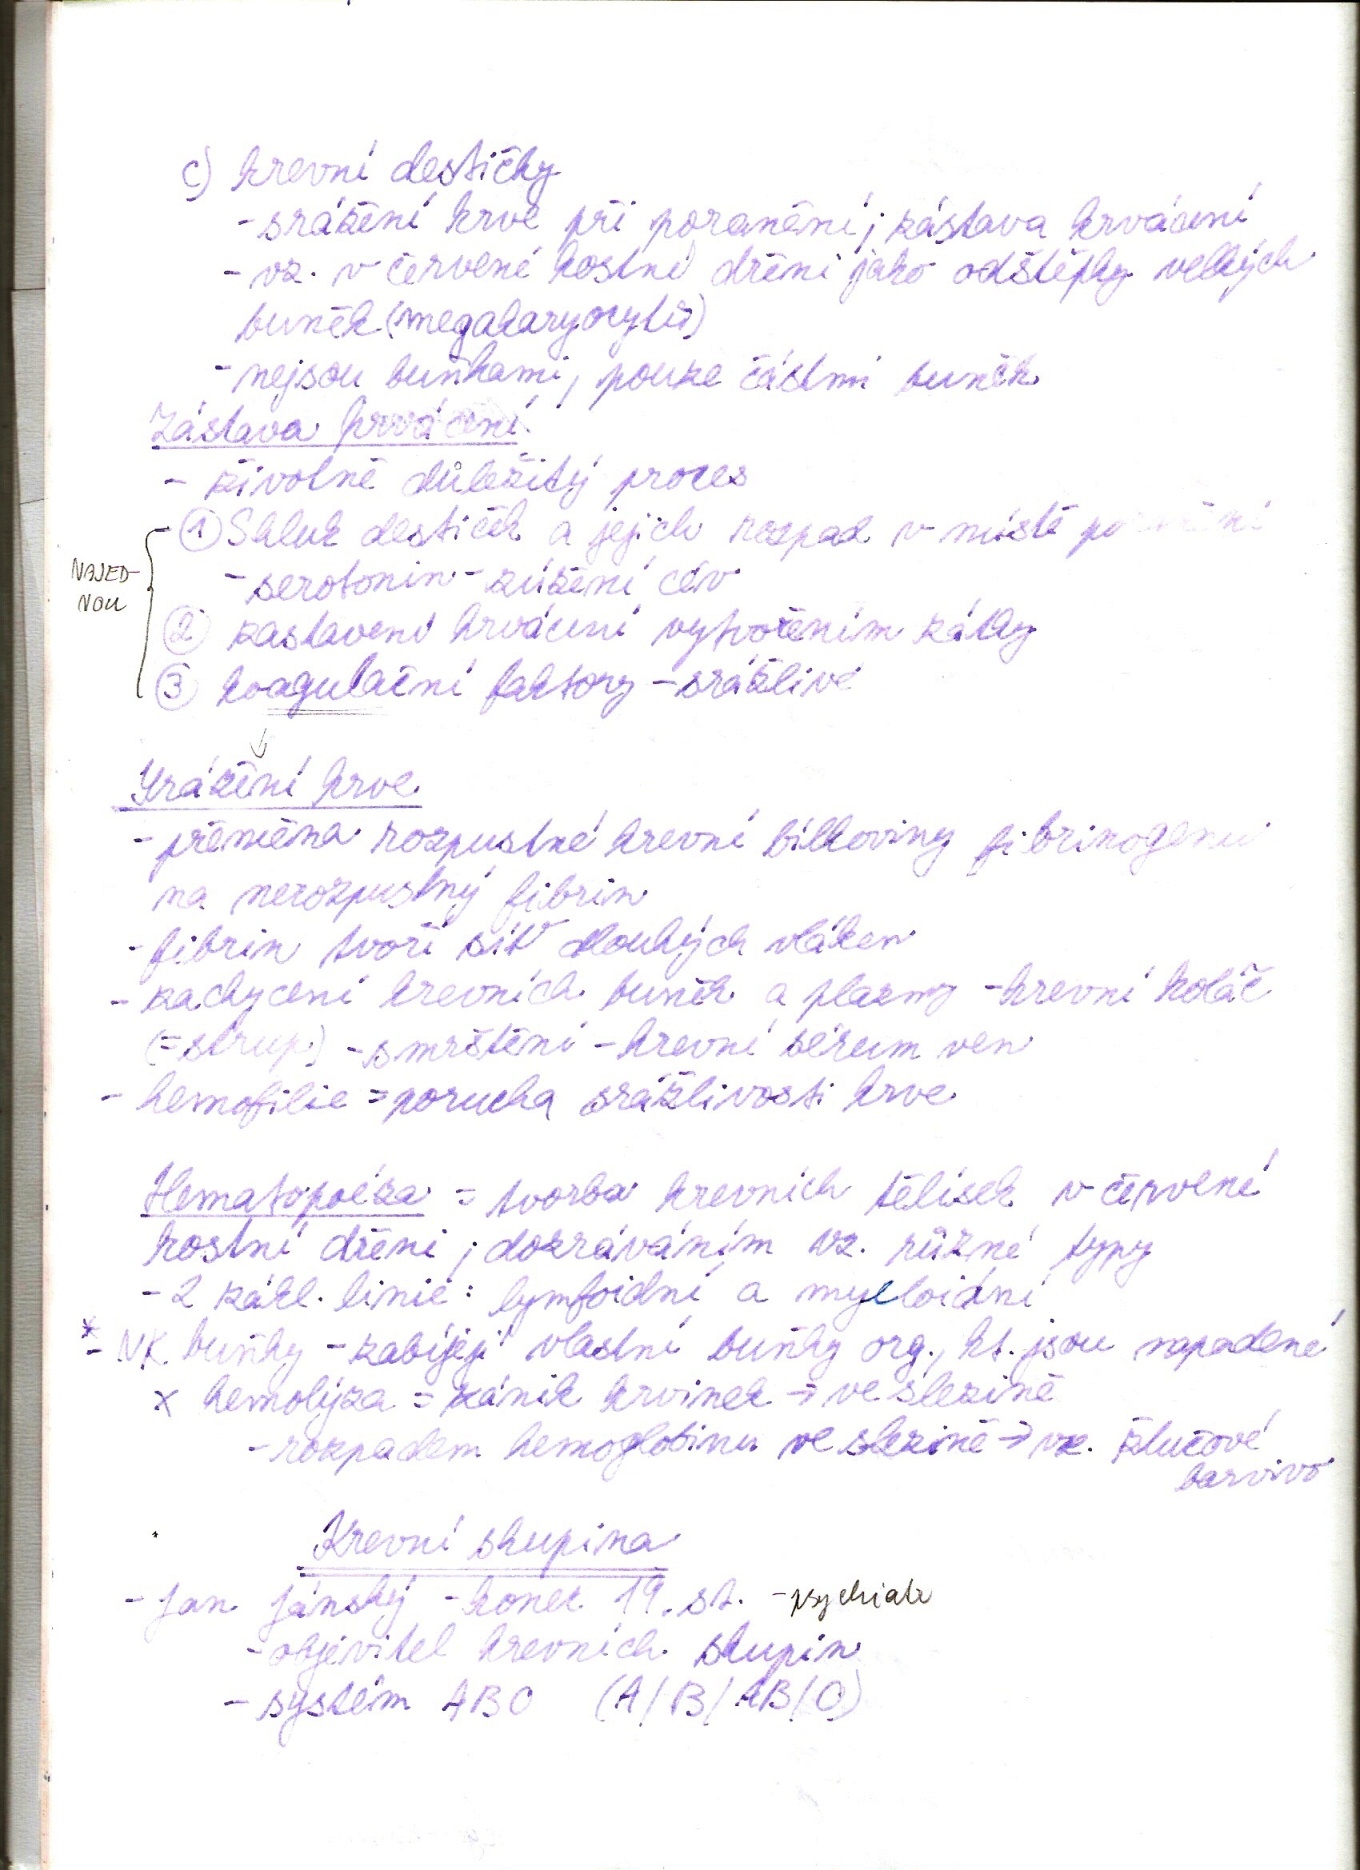 c) krevní destičky
- srážení krve při poranění; zástava krvácení
- vz. v červené kostní dřeni jako odštěpky velkých
buněk (megakaryocytů)
- nejsou buňkami, pouze částmi buněk
Zástava krvácení
- životně důležitý proces
① Shluk destiček a jejich rozpad v místě poranění
- serotonin - zúžení cév
NAJED-
NOU
② zastavení krvácení vytvořením zátky
③ koagulační faktory - srážlivé
↓
Srážení krve
- přeměna rozpustné krevní bílkoviny fibrinogenu
na nerozpustný fibrin
- fibrin tvoří síť dlouhých vláken
- zachycení krevních buněk a plazmy - krevní koláč
(= strup) - smrštění - krevní sérum ven
- hemofilie = porucha srážlivosti krve
Hematopoéza = tvorba krevních tělísek v červené
kostní dřeni; dozráváním vz. různé typy
- 2 zákl. linie: lymfoidní a myeloidní
* - NK buňky - zabíjejí vlastní buňky org., kt. jsou napadené
x hemolýza = zánik krvinek → ve slezině
- rozpadem hemoglobinu ve slezině → vz. žlučové
barvivo
Krevní skupina
- Jan Jánský - konec 19. st. - psychiatr
- objevitel krevních skupin
- systém ABO (A/B/AB/O)